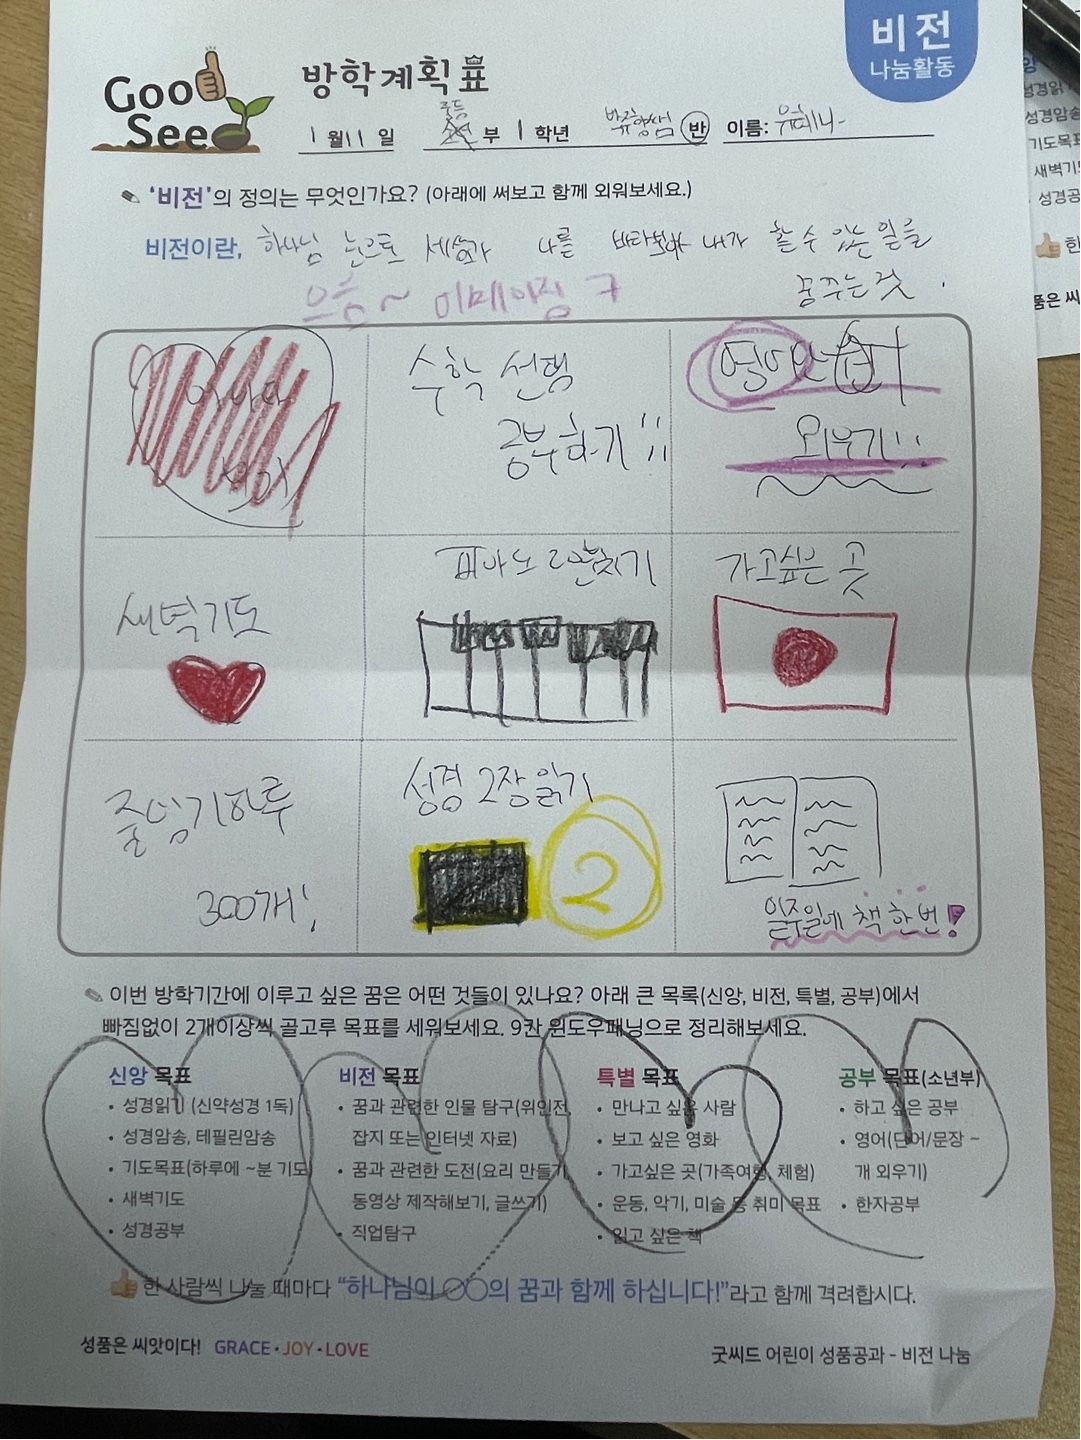 Good
Seed
방학계획표
비전
나눔활동
중등
1월 11일 부 1학년 반 이름: 유혜나
'비전'의 정의는 무엇인가요? (아래에 써보고 함께 외워보세요.)
비전이란, 하나님 눈으로 세상과 나를 바라보며 내가 할 수 있는 일을
꿈꾸는 것.
으흠~ 이메이징 굿
수학 선행
공부하기!!
영어단어
외우기!!
새벽기도
피아노 2번치기
가고싶은 곳
줄넘기하루
300개!
성경 2장 읽기
2
일주일에 책 한 번!
이번 방학기간에 이루고 싶은 꿈은 어떤 것들이 있나요? 아래 큰 목록(신앙, 비전, 특별, 공부)에서
빠짐없이 2개이상씩 골고루 목표를 세워보세요. 9칸 윈도우패닝으로 정리해보세요.
신앙 목표
• 성경읽기 (신약성경 1독)
• 성경암송, 테필린암송
• 기도목표(하루에 ~분 기도)
• 새벽기도
• 성경공부
비전 목표
• 꿈과 관련한 인물 탐구(위인전,
잡지 또는 인터넷 자료)
• 꿈과 관련한 도전(요리 만들기,
동영상 제작해보기, 글쓰기)
• 직업탐구
특별 목표
• 만나고 싶은 사람
• 보고 싶은 영화
• 가고싶은 곳(가족여행, 체험)
• 운동, 악기, 미술 등 취미 목표
• 읽고 싶은 책
공부 목표(소년부)
• 하고 싶은 공부
• 영어(단어/문장 ~
개 외우기)
• 한자공부
한 사람씩 나눌 때마다 "하나님이 ○○의 꿈과 함께 하십니다!"라고 함께 격려합시다.
성품은 씨앗이다! GRACE·JOY·LOVE
굿씨드 어린이 성품공과 - 비전 나눔